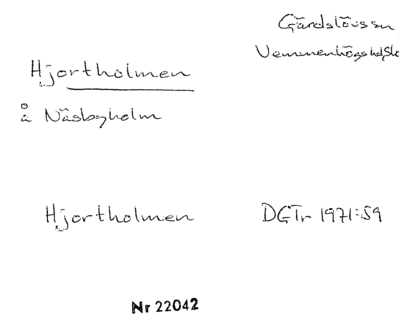 Gärdslövs sn
Vemmenhögs hd, Sk
Hjortholmen
å Näsbyholm
Hjortholmen DGTr 1971:59
Nr 22042